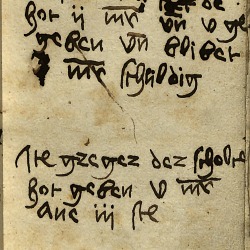 hot ii mr vn v ge
geben vn blibet
mr schuldig
Ite gregez dez scholte
hot geben v mr
ane iii ste